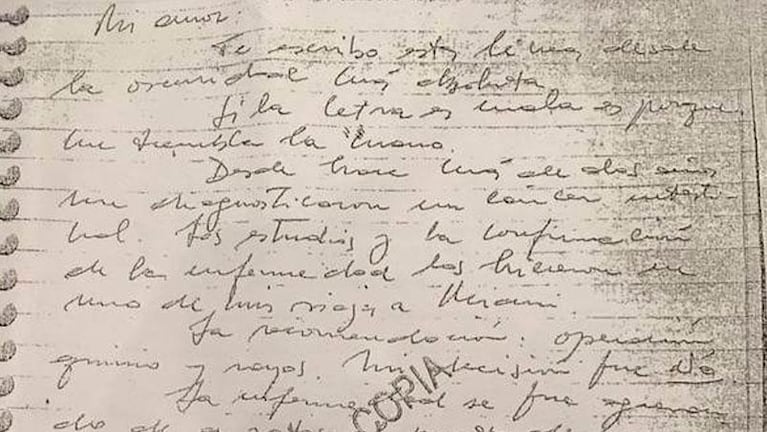 Mi amor:
Te escribo estas líneas desde
la oscuridad más absoluta
Si la letra es mala es porque
me tiembla la mano.
Desde hace más de dos años
me diagnosticaron un cáncer intesti-
nal. Los estudios y la confirmación
de la enfermedad los hicieron en
uno de mis viajes a Miami.
La recomendación: operación
quimio y rayos. Mi decisión fue No
La enfermedad se fue
COPIA